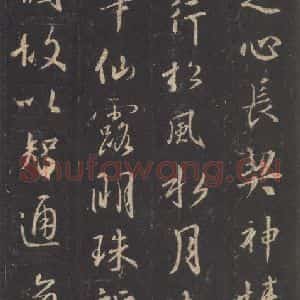 之心長契神情
行松風水月
華仙露明珠詎
故以智通無
Shufawang.cn